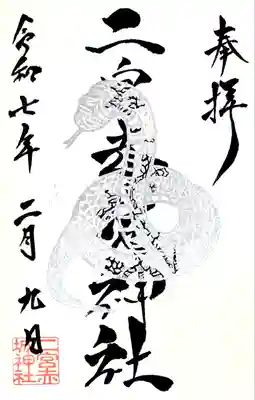 奉拝
二宮赤城神社
令和七年 二月 九日
二宮赤
城神社